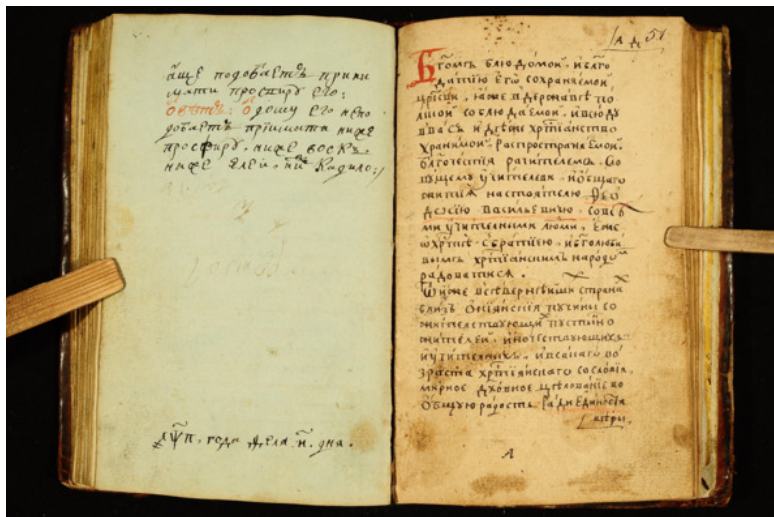 аще подобаетъ прини
мати просфиру его:
Ѿвѣтъ: Ѿ дому его непо
добаетъ прїимати ниже
просфиру, ниже воскъ,
ниже елей, ни кадило:
҂аѱп, года дня.
51
Бг҃омъ блюдомои, и благо
датїю его сохраняемои
цр҃кви, ꙗже в державѣ по
лшои соблюдаемои, и всюду
в васъ идѣже хрⷭ҇тїанство
хранимои. Распространяемои.
благочестїя рачителемъ.
учителеви, и общаго
житїя настоятелю Ѳео
досїю васильевичю, со всѣ
ми учителными людми, еже
ѡ хрⷭ҇тѣ с братїею, и бг҃олюби
вымъ хрⷭ҇тїанскимъ народомъ
радоватися.
Ѿ иже страна
близъ Ѻкїянскїя пучины со
жителствующи пустынно
жителей, иночествующихъ
и учителныхъ, и всякаго во
зраста хрⷭ҇тїянскаго сословїя,
мирное дꙋховное цѣлованїе во
общую радость Ради единости
вѣры.